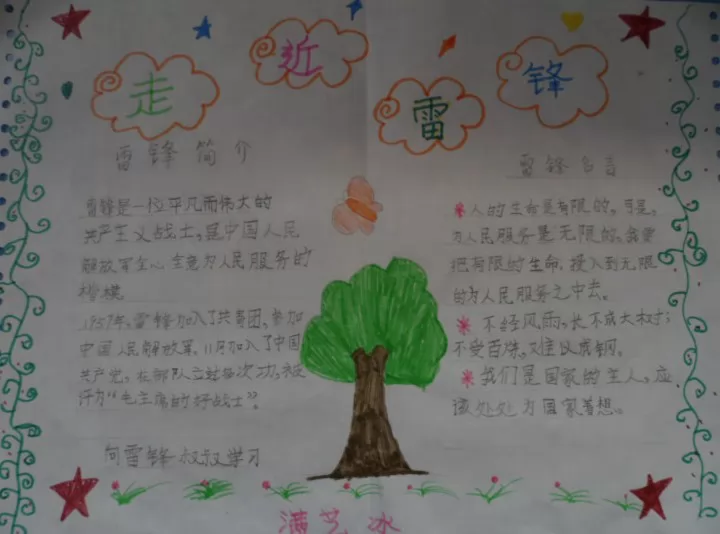 走近雷锋
雷锋简介
雷锋是一位平凡而伟大的
共产主义战士，是中国人民
解放军全心全意为人民服务的
楷模
雷锋加入了共青团，参加
中国人民解放军，11月加入了中国
共产党，在部队立
"毛主席的好战士"。
向雷锋叔叔学习
雷锋名言
人的生命是有限的，可是，
为人民服务是无限的，我要
把有限的生命，投入到无限
的为人民服务之中去。
不经风雨，长不成大树；
不受百炼，难以成钢。
我们是国家的主人，应
该处处为国家着想。
满艺冰